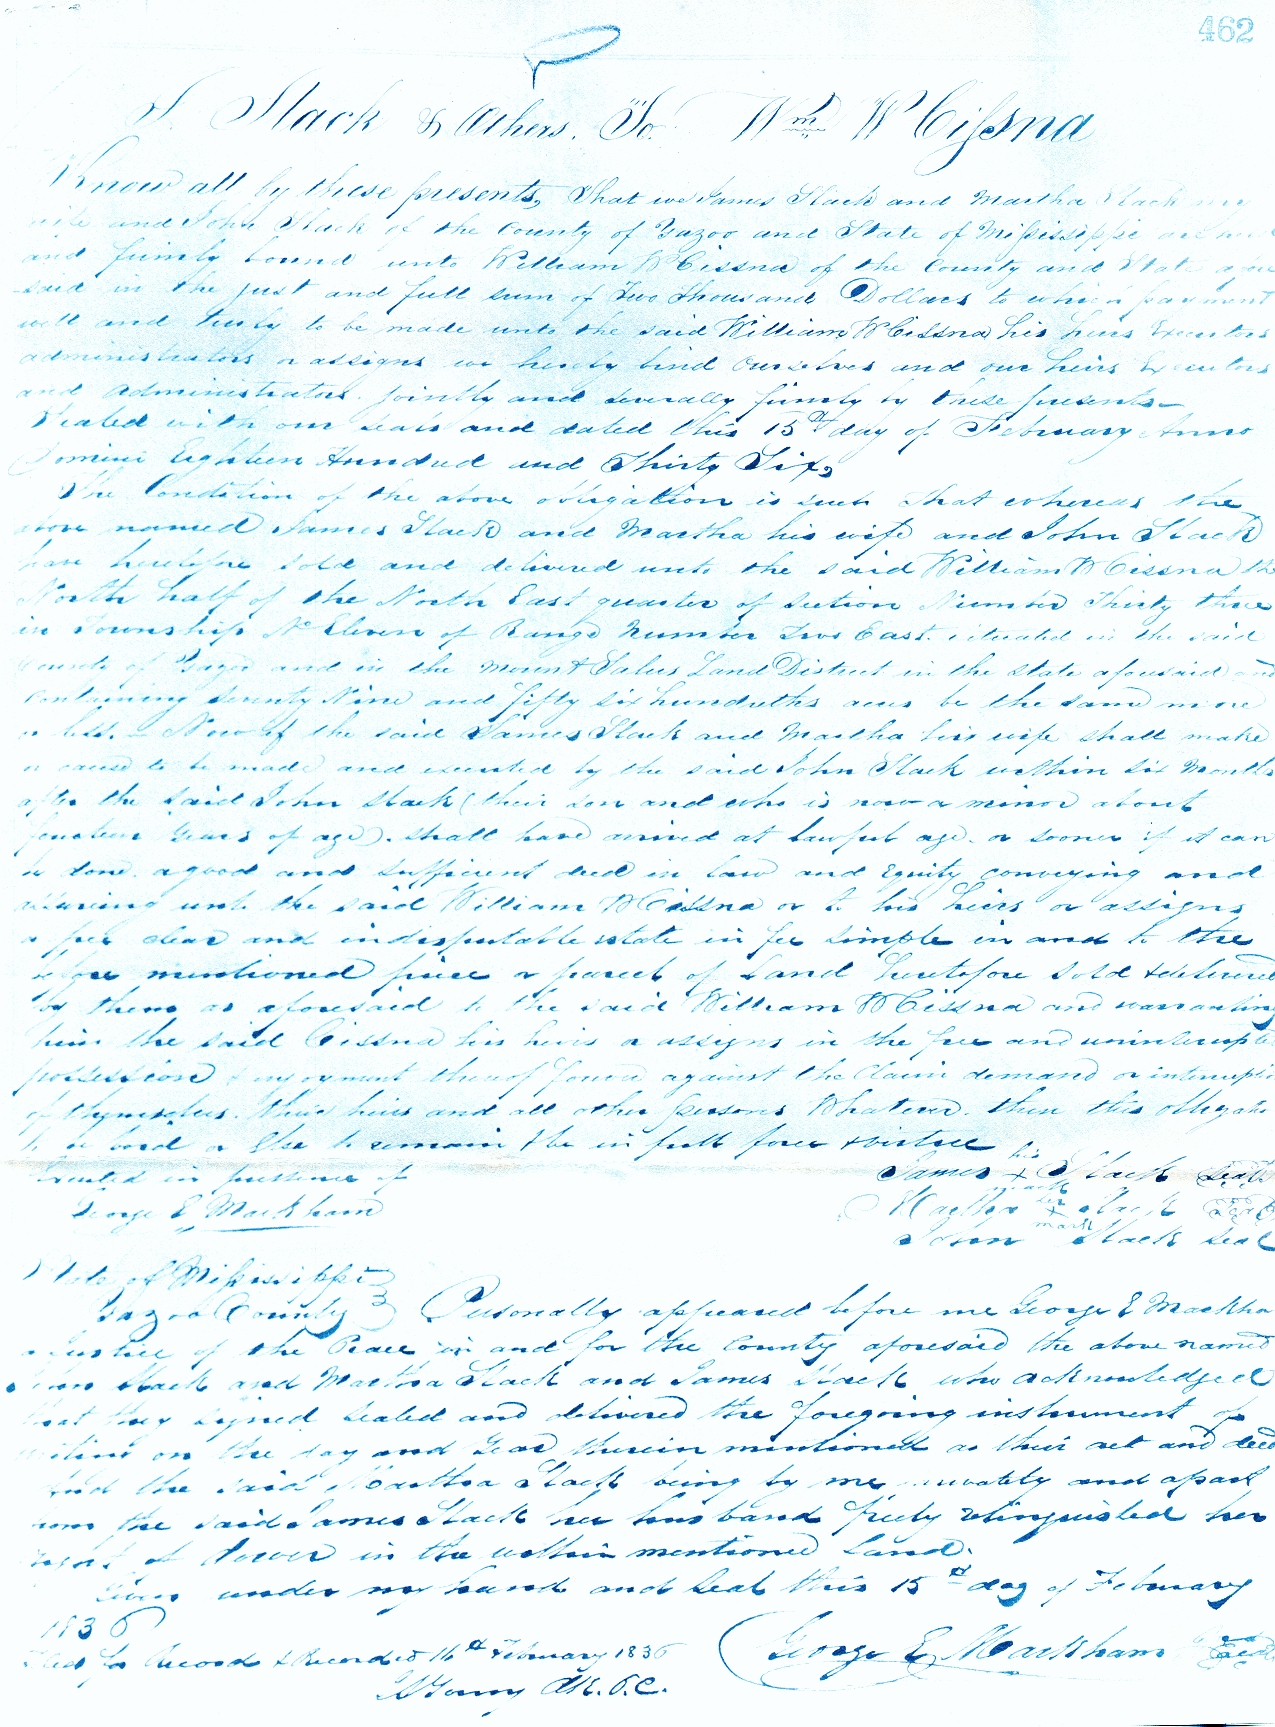 462
J. Slack & Others. To Wm W Cissna
Know all by these presents, That we James Slack and Martha Slack my
wife and John Slack of the County of Yazoo and State of Mississippi are held
and firmly bound unto William W Cissna of the County and State afore
said in the just and full sum of Two Thousand Dollars to which payment
well and truly to be made unto the said William W Cissna his heirs Executors
administrators or assigns we hereby bind Ourselves and our heirs Executors
and administrators jointly and severally firmly by these presents
Sealed with our seals and dated this 15th day of February Anno
Domini Eighteen Hundred and Thirty Six,
The Condition of the above obligation is such that whereas the
above named James Slack and Martha his wife and John Slack
have heretofore sold and delivered unto the said William W Cissna the
North half of the North East quarter of section Number Thirty three
in Township No Eleven of Range Number Two East. situated in the said
County of Yazoo and in the Mount Salus Land District in the state aforesaid and
containing seventy Nine and fifty six hundreths acres be the same more
or less. Now if the said James Slack and Martha his wife shall make
or cause to be made and executed by the said John Slack within six Months
after the said John Slack (their son and who is now a minor about
fourteen years of age). shall have arrived at lawful age. or sooner if it can
be done. a good and sufficient deed in law and Equity conveying and
assuring unto the said William W Cissna or to his heirs or assigns
a free clear and indisputable estate in fee simple in and to the
before mentioned piece or parcel of Land heretofore sold & delivered
by them as aforesaid to the said William W Cissna and warranting
him the said Cissna his heirs or assigns in the free and uninterupted
possession & enjoyment thereof forever against the Claim demand or interruption
of themselves. their heirs and all other persons Whatever. then this obligation
to be void or Else to remain & be in full force & virtue
Executed in presence of James his X mark Slack Seal
George E Markham Martha her X mark Slack Seal
John Slack Seal
State of Mississippi
Yazoo County } Personally appeared before me George E Markham
a Justice of the Peace in and for the County aforesaid the above named
John Slack and Martha Slack and James Slack who acknowledged
that they signed sealed and delivered the foregoing instrument of
writing on the day and year therein mentioned as their act and deed
And the said Martha Slack being by me privately and apart
from the said James Slack her husband freely relinquished her
right of dower in the within mentioned Land.
Given under my hand and seal this 15th day of February
1836
George E Markham Seal
Filed for Record & Recorded 16th February 1836